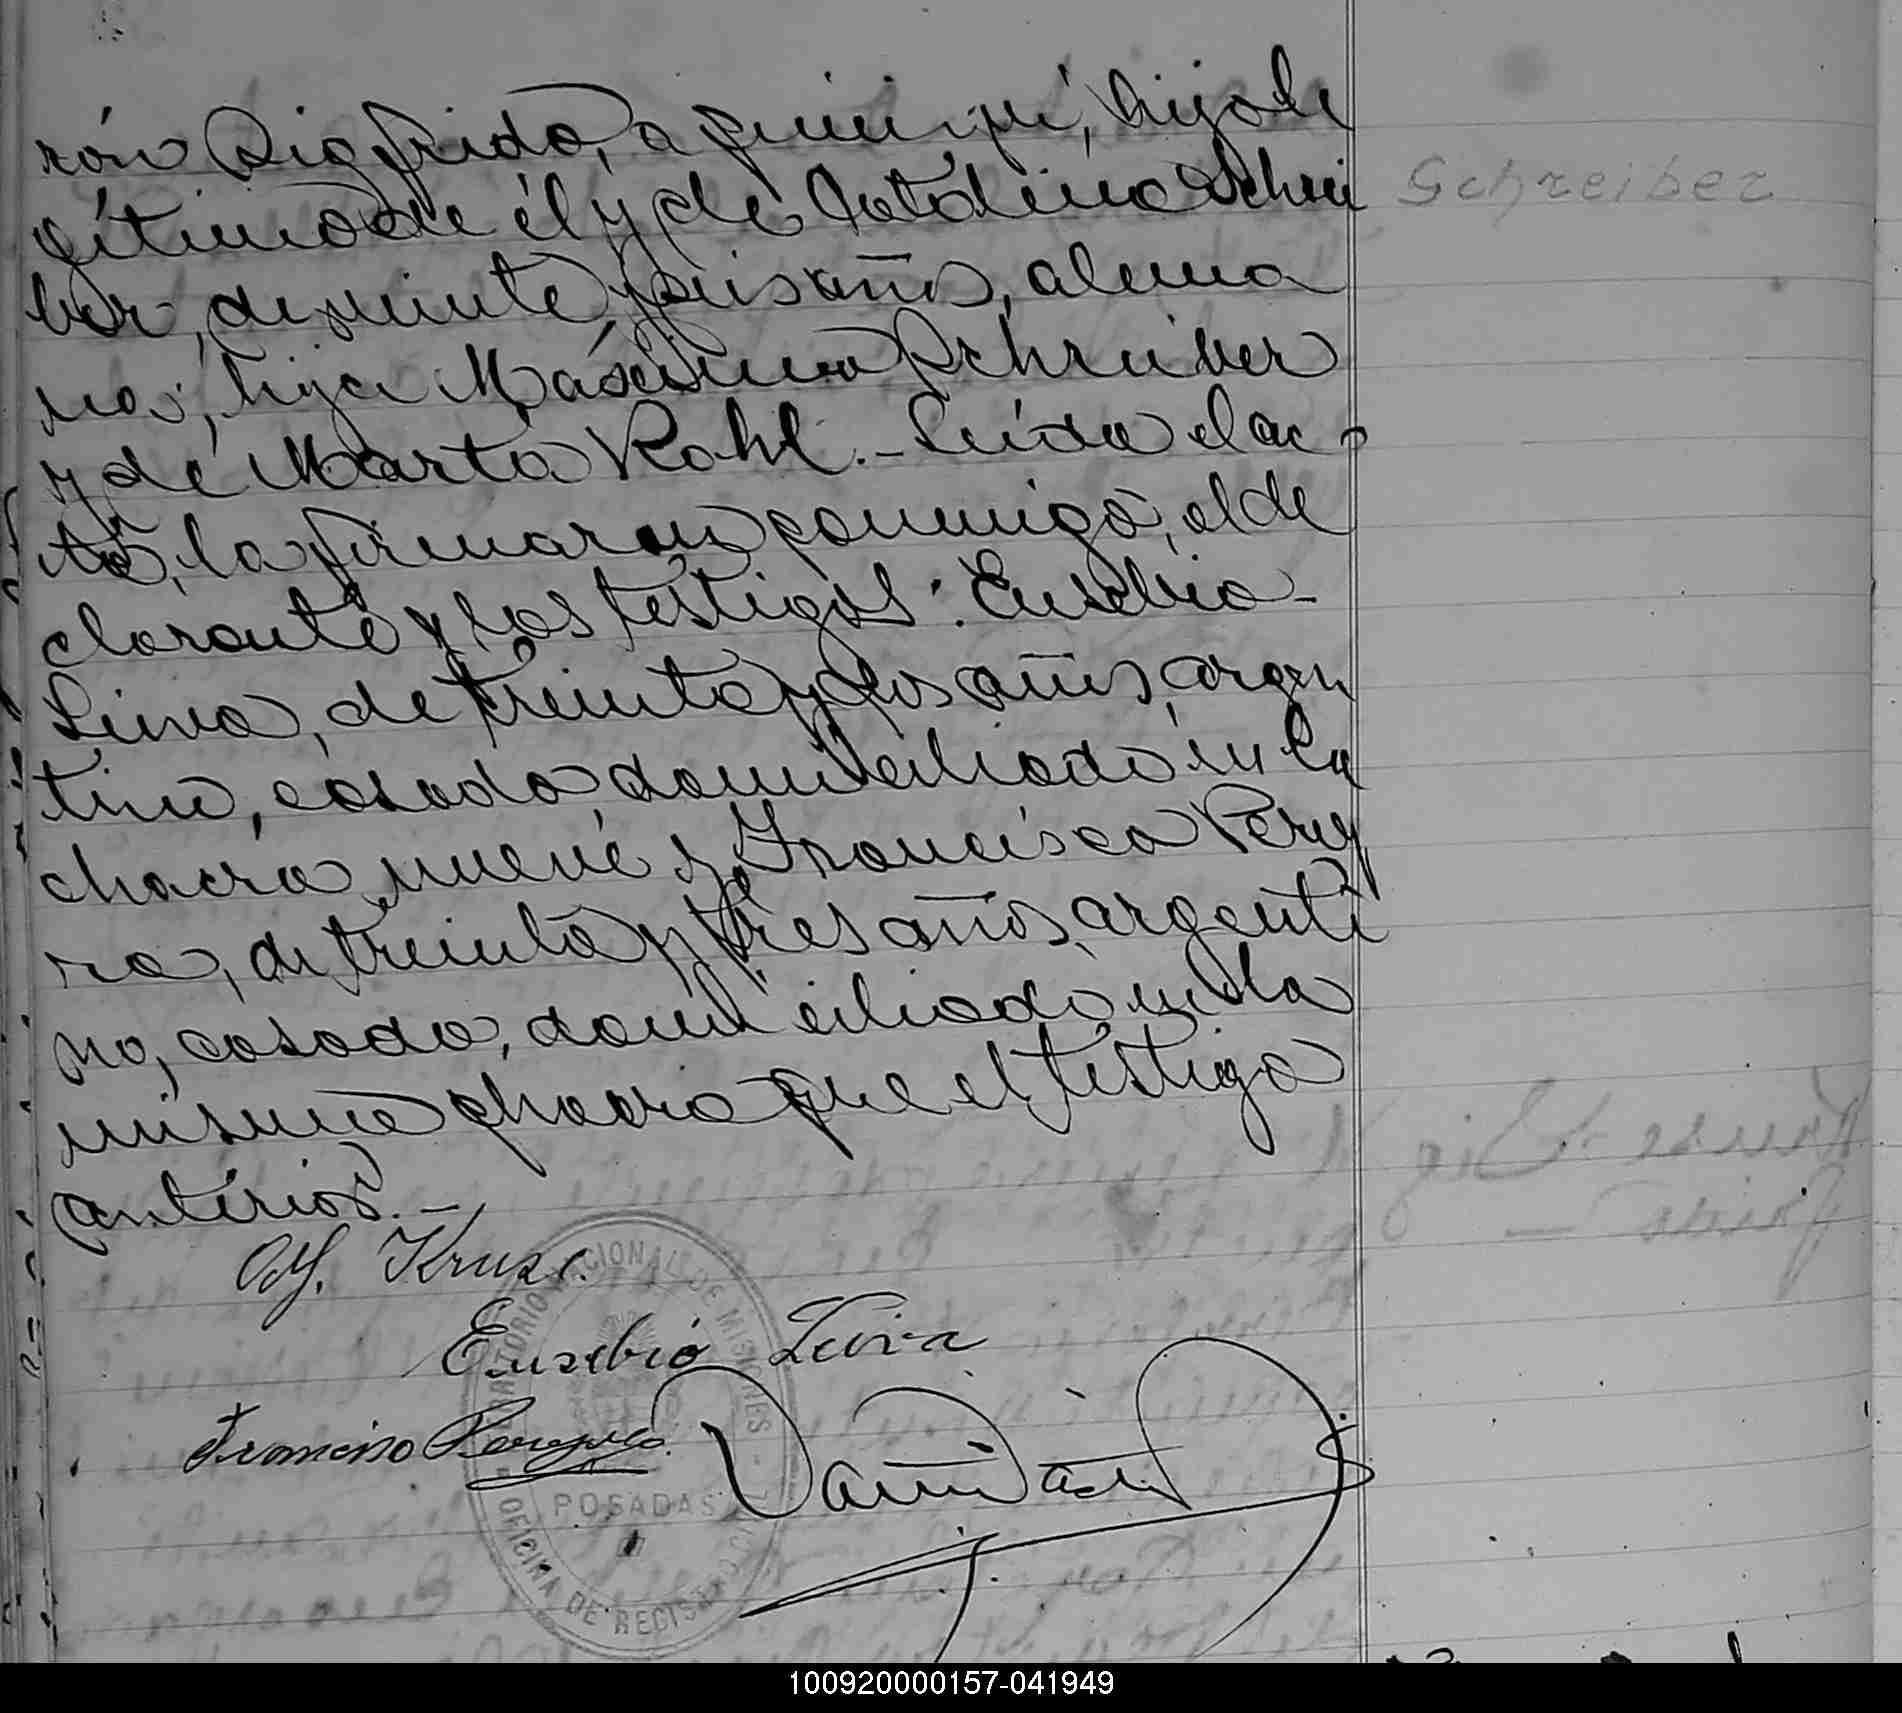 rón Sigfrido, a quien ví, hijo le
gítimo de él y de Catalina Schrei
ber, de veinte y seis años, alema
na, hija Máximo Schreiber
y de Marta Kohl.- Leída el ac
ta, la firmaron conmigo, el de
clarante y los testigos: Eusebio
Leiva, de treinta y dos años, argen
tino, casado, domiciliado en la
chacra nueve y Francisco Perey
ra, de treinta y tres años, argenti
no, casado, domiciliado en la
misma chacra que el testigo
anterior.-
Schreiber
Kruse
Eusebio Leiva
Francisco
TERRITORIO NACIONAL DE MISIONES
POSADAS
OFICINA DE REGISTRO CIVIL
100920000157-041949